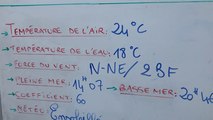 TEMPÉRATURE DE L'AIR: 24°C
TEMPÉRATURE DE L'EAU: 18°C
FORCE DU VENT: N-NE/ 2 BF
PLEINE MER: 14H07 BASSE MER: 20H
COEFFICIENT: 60
MÉTÉO: